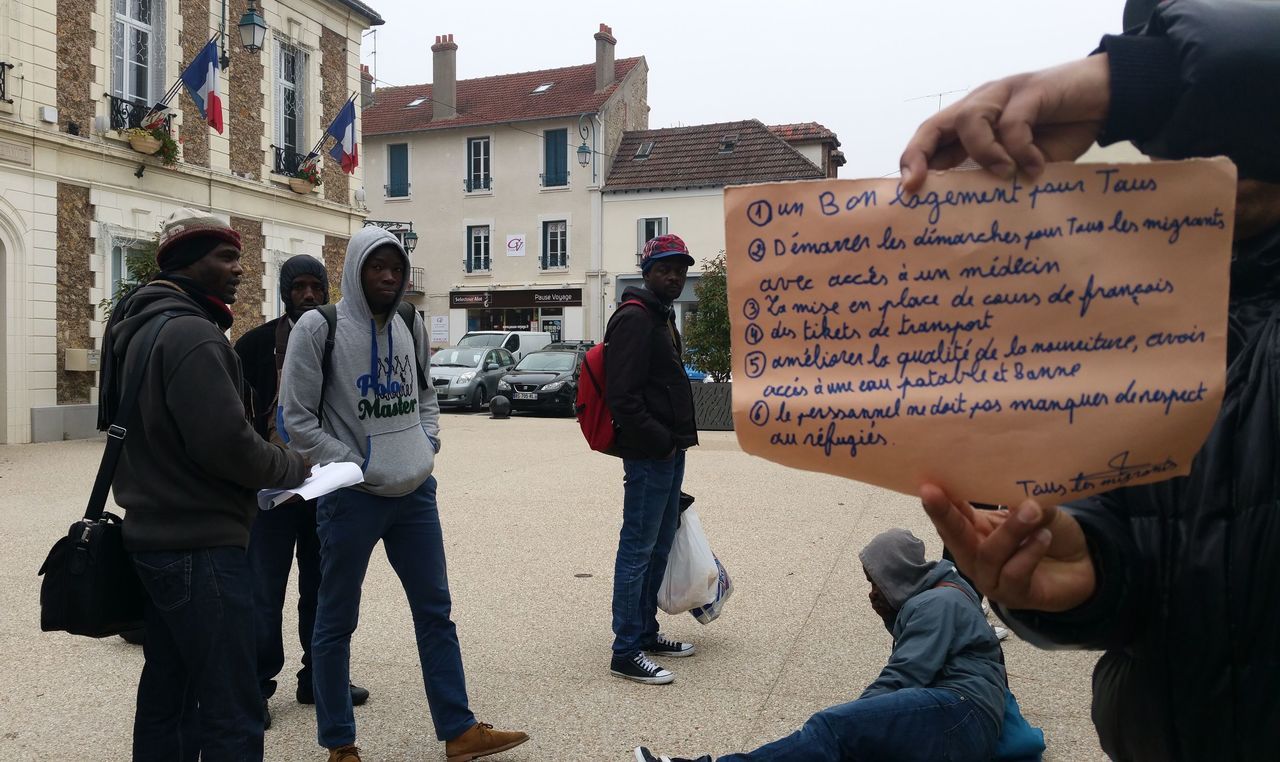 ① un Bon logement pour Tous
② Démarrer les démarches pour Tous les migrants
avec accès à un médecin
③ La mise en place de cours de français
④ des tikets de transport
⑤ améliorer la qualité de la nourriture, avoir
accès à une eau potable et Bonne
⑥ le perssonnel ne doit pas manquer de respect
au réfugiés.
Tous les migrants
Pause Voyage
Polo
Master